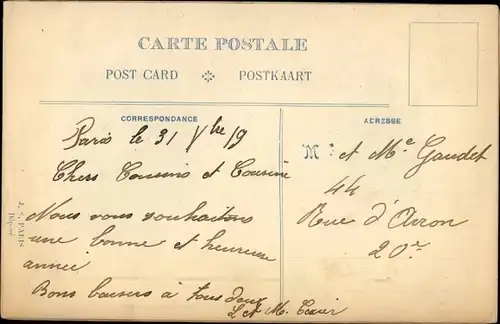 CARTE POSTALE
POST CARD POSTKAART
CORRESPONDANCE
Paris le 31 Xbre 19
Chers Cousins et Cousine
Nous vous souhaitons
une bonne et heureuse
année
Bons baisers à tous deux
L et M.
ADRESSE
M. et Me Gaudet
44
Rue d'Avron
20e
J. S. PARIS
Déposé